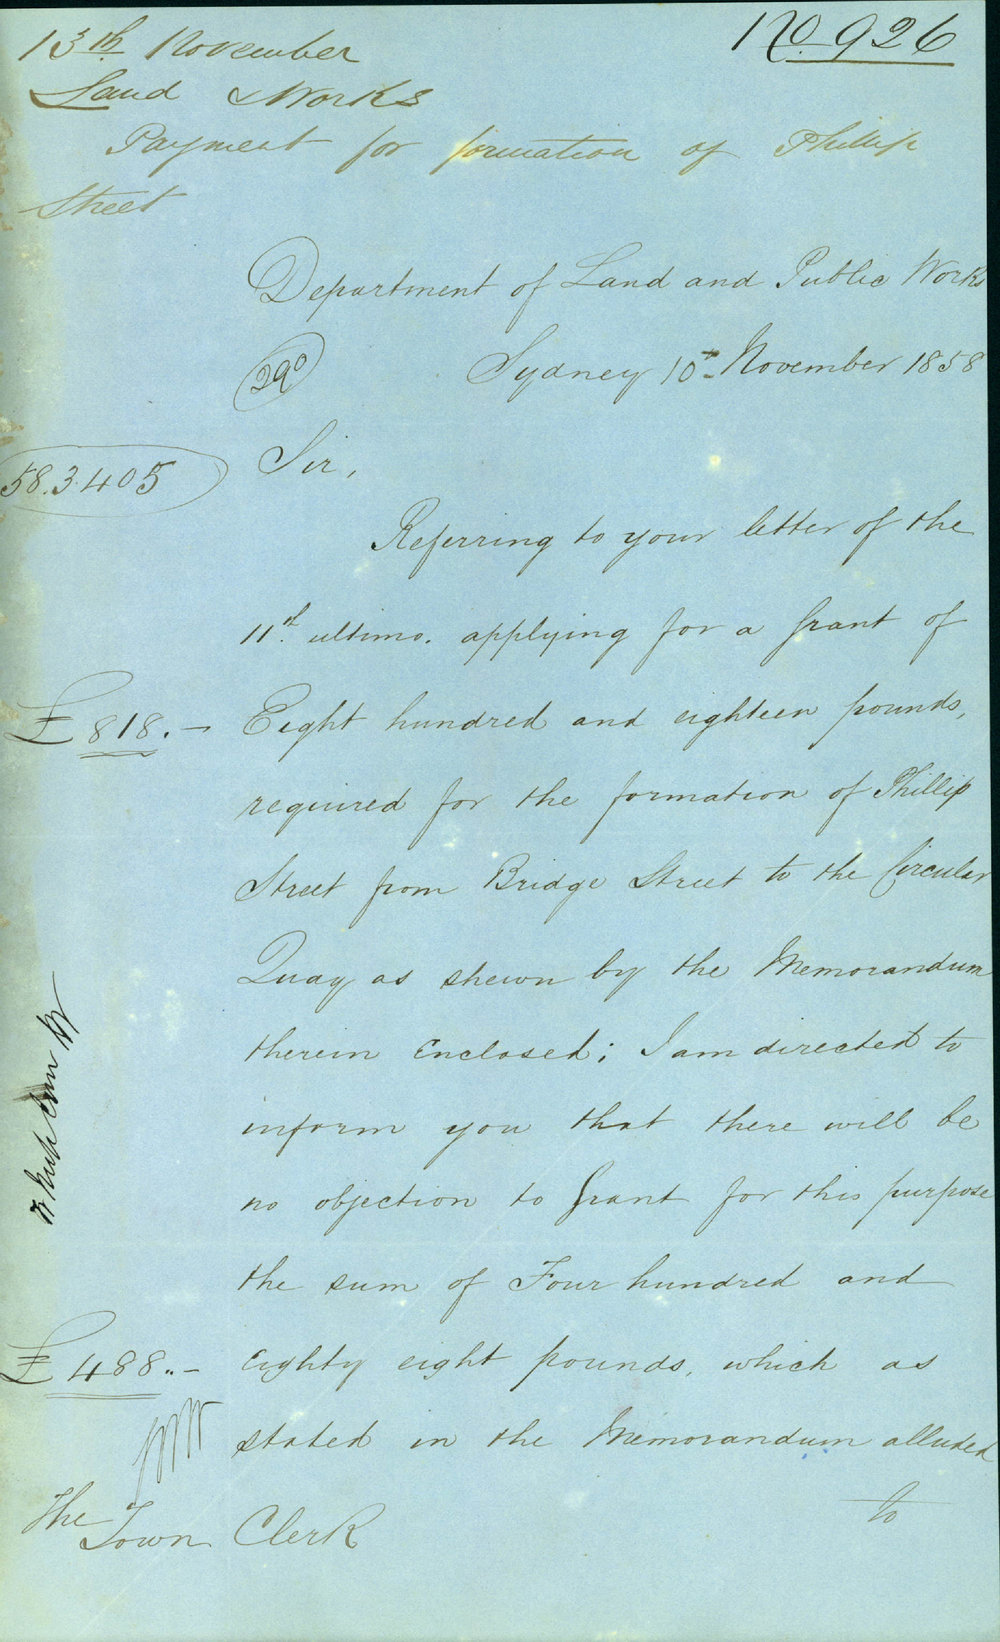 13th November
No 926
Land & Works
Payment for formation of Phillip
Street
Department of Land and Public Works
290
Sydney 10th November 1858
58.3405
Sir,
Referring to your letter of the
11th ultimo. applying for a grant of
£818.- Eight hundred and eighteen pounds,
required for the formation of Phillip
Street from Bridge Street to the Circular
Quay as shewn by the Memorandum
therein enclosed; I am directed to
inform you that there will be
no objection to grant for this purpose
the sum of Four hundred and
£488..- eighty eight pounds, which as
stated in the Memorandum alluded
to
The
Town Clerk